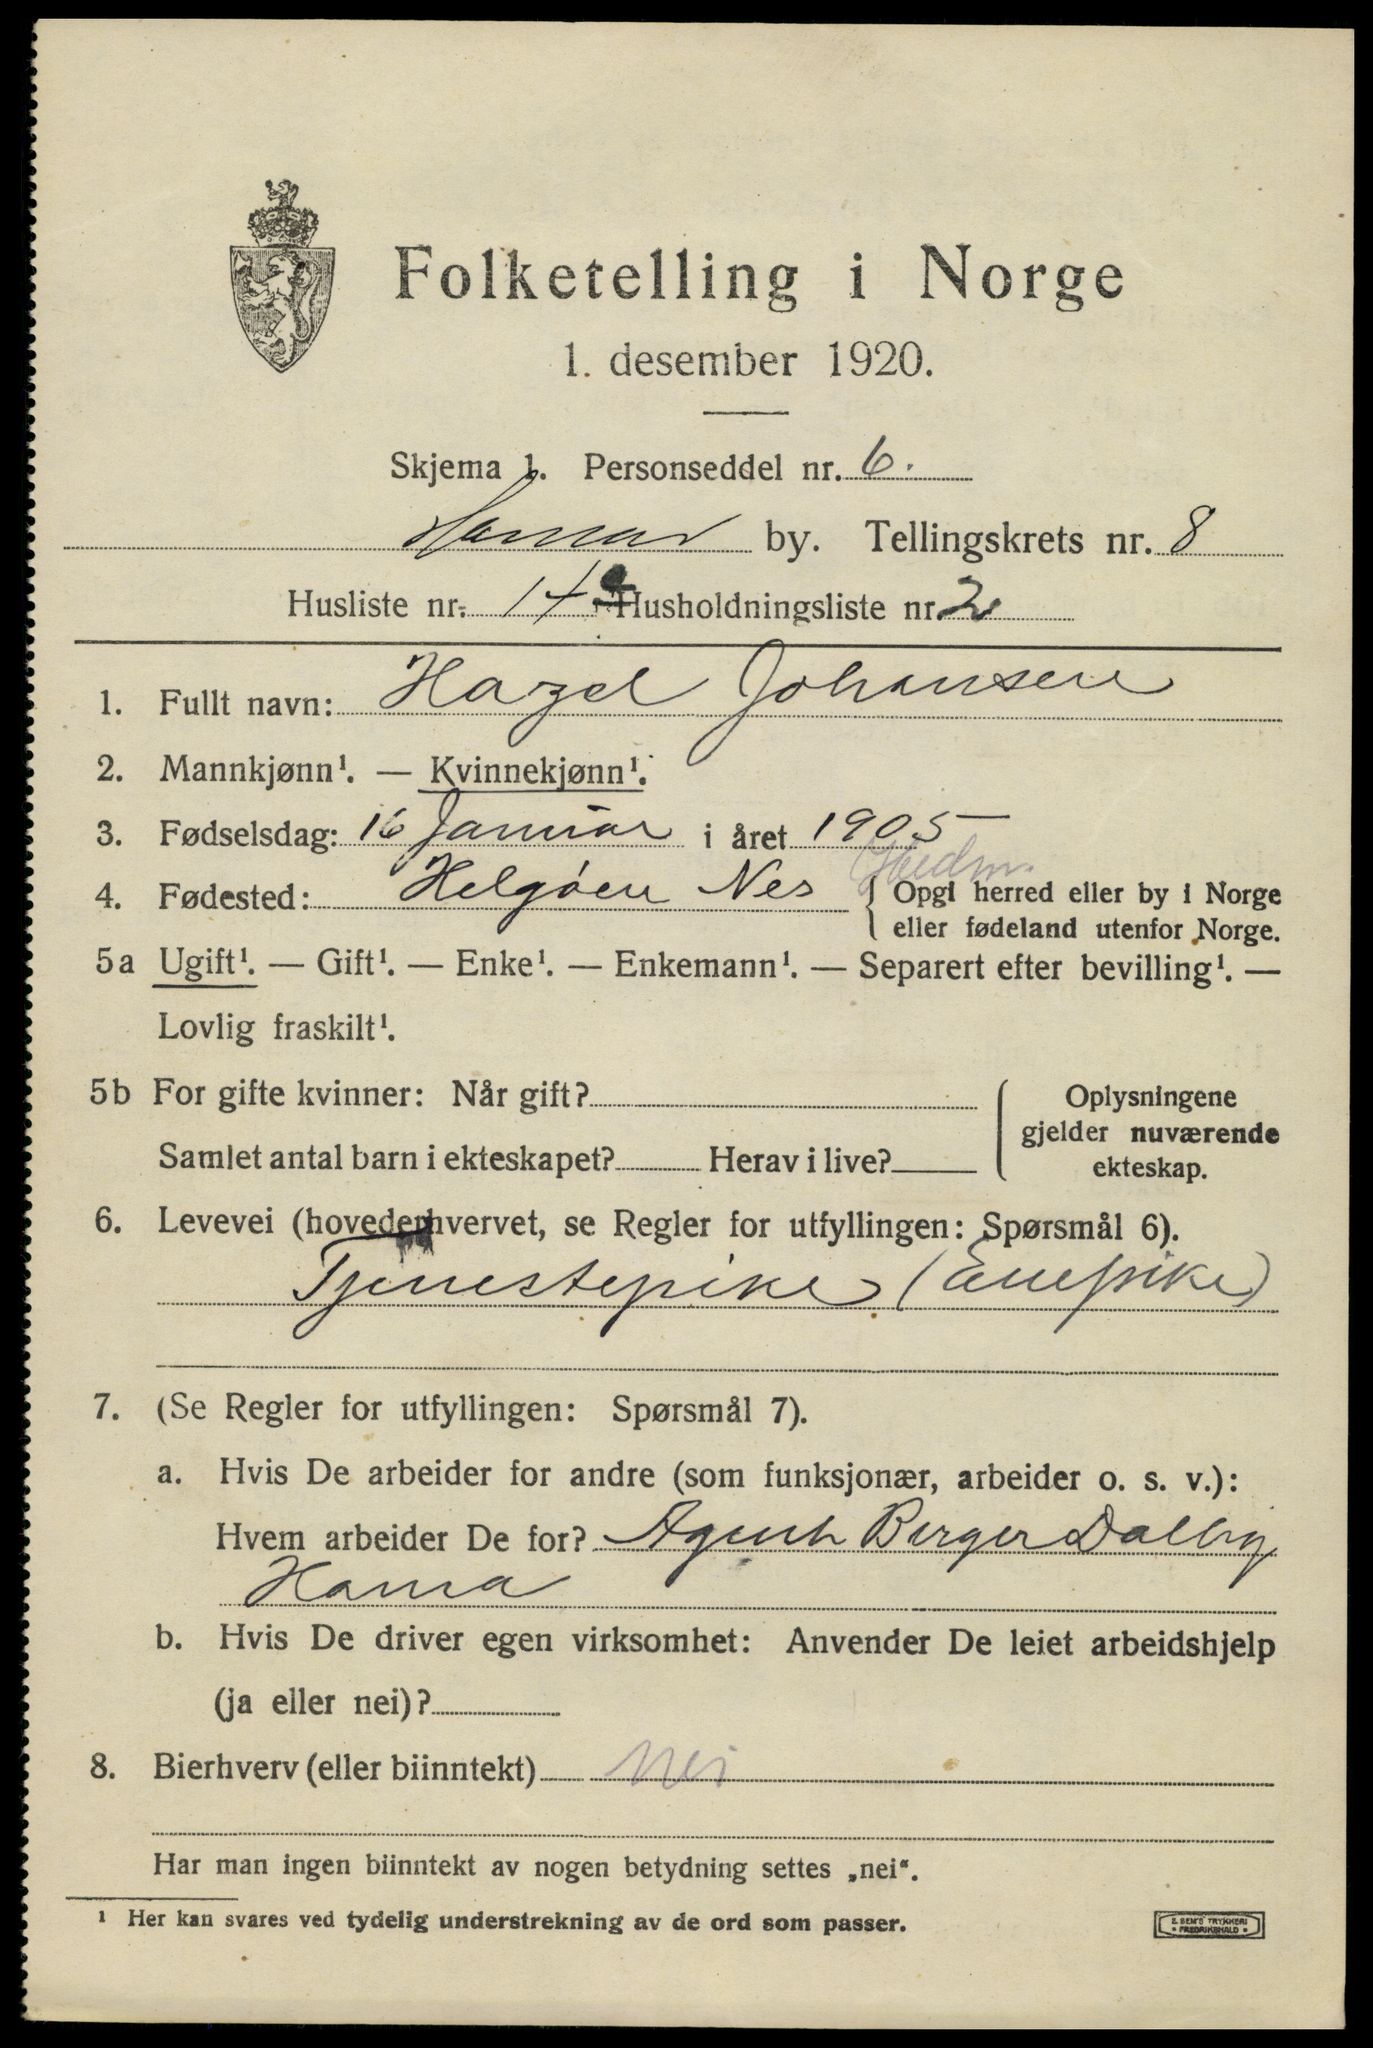 Folketelling i Norge
1. desember 1920.
Skjema 1. Personseddel nr. 6.
Hamar by. Tellingskrets nr. 8
Husliste nr. 14 Husholdningsliste nr. 2
1. Fullt navn: Hazel Johansen
2. Mannkjønn¹. — Kvinnekjønn¹.
3. Fødselsdag: 16 Januar i året 1905
Hedm.
4. Fødested: Helgøen Nes { Opgi herred eller by i Norge
eller fødeland utenfor Norge.
5a Ugift¹. — Gift¹. — Enke¹. — Enkemann¹. — Separert efter bevilling¹. —
Lovlig fraskilt¹.
5b For gifte kvinner: Når gift? { Oplysningene
gjelder nuværende
Samlet antal barn i ekteskapet? Herav i live? ekteskap.
6. Levevei (hovederhvervet, se Regler for utfyllingen: Spørsmål 6).
Tjenestepike (Enepike)
7. (Se Regler for utfyllingen: Spørsmål 7).
a. Hvis De arbeider for andre (som funksjonær, arbeider o. s. v.):
Hvem arbeider De for? Agent Birger Dalby
Hama
b. Hvis De driver egen virksomhet: Anvender De leiet arbeidshjelp
(ja eller nei)?
8. Bierhverv (eller biinntekt) nei
Har man ingen biinntekt av nogen betydning settes „nei“.
¹ Her kan svares ved tydelig understrekning av de ord som passer.
E. SEM'S TRYKKERI
• FREDRIKSHALD •